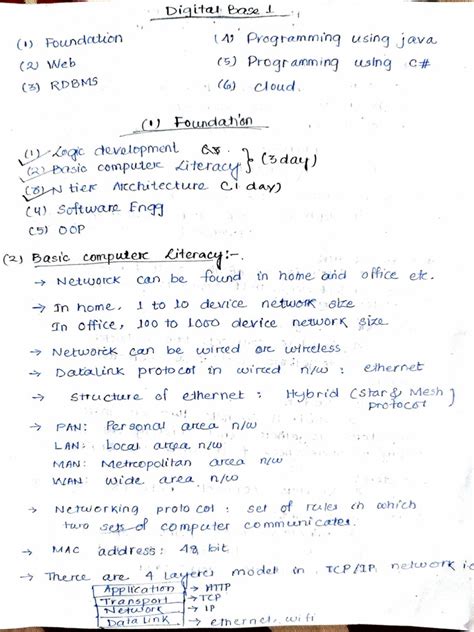 Digital Base 1
(1) Foundation
(2) Web
(3) RDBMS
(4) Programming using java
(5) Programming using C#
(6) Cloud.
(1) Foundation
(1) Logic development
(2) Basic computer Literacy } (3 day)
(3) N tier Architecture (1 day)
(4) Software Engg
(5) OOP
(2) Basic computer Literacy:-
→ Network can be found in home and office etc.
→ In home, 1 to 10 device network size
In office, 100 to 1000 device network size
→ Network can be wired or wireless
→ Datalink protocol in wired n/w : ethernet
→ Structure of ethernet : Hybrid (Star & Mesh
protocol)
→ PAN: Personal area n/w
LAN: Local area n/w
MAN: Metropolitan area n/w
WAN: Wide area n/w
→ Networking protocol : set of rules in which
two sets of computer communicates.
→ MAC address : 48 bit
→ There are 4 layers model in TCP/IP network
Application → HTTP
Transport → TCP
Network → IP
Data Link → ethernet, wifi